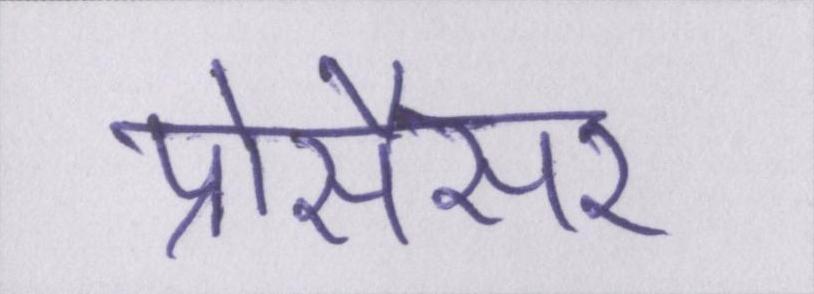 प्रोसैसर